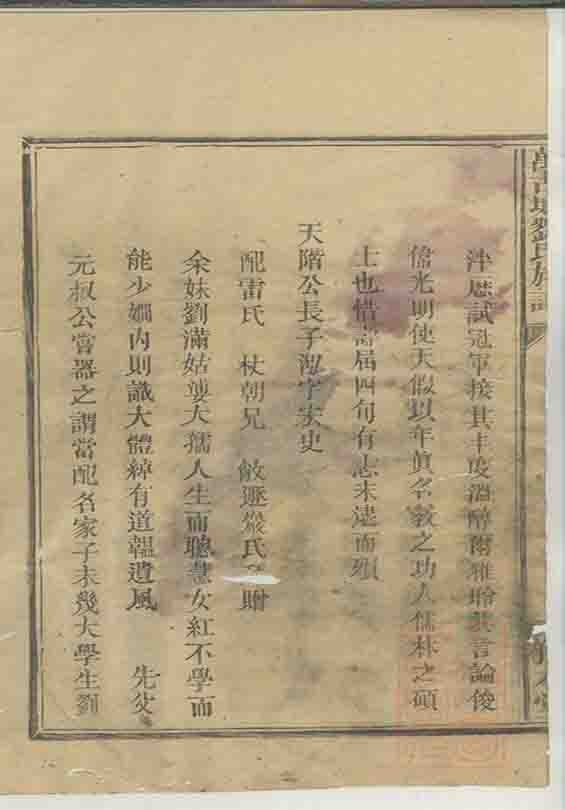 劉氏族譜
泮歷試冠軍接其丰度溫醇爾雅聆其言論俊
偉光明使天假以年眞名敎之功人儒林之碩
士也惜壽屆四旬有志未逮而殞
天階公長子 字宏史
配雷氏 杖朝兄 啟遜嚴氏 贈
余妹劉滿姑婆大孺人生而聰慧女紅不學而
能少嫺内則識大體綽有道韞遺風 先父
元叔公嘗器之謂當配名家子未幾大學生劉